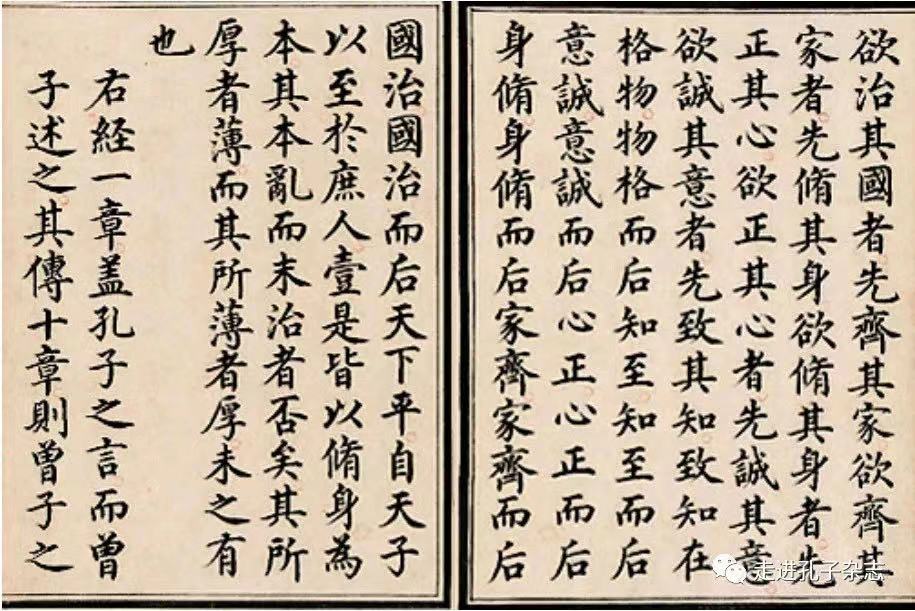 欲治其國者先齊其家欲齊其
家者先脩其身欲脩其身者先
正其心欲正其心者先誠其意
欲誠其意者先致其知致知在
格物物格而后知至知至而后
意誠意誠而后心正心正而后
身脩身脩而后家齊家齊而后
國治國治而后天下平自天子
以至於庶人壹是皆以脩身為
本其本亂而末治者否矣其所
厚者薄而其所薄者厚未之有
也
右經一章蓋孔子之言而曾
子述之其傳十章則曾子之
走进孔子杂志